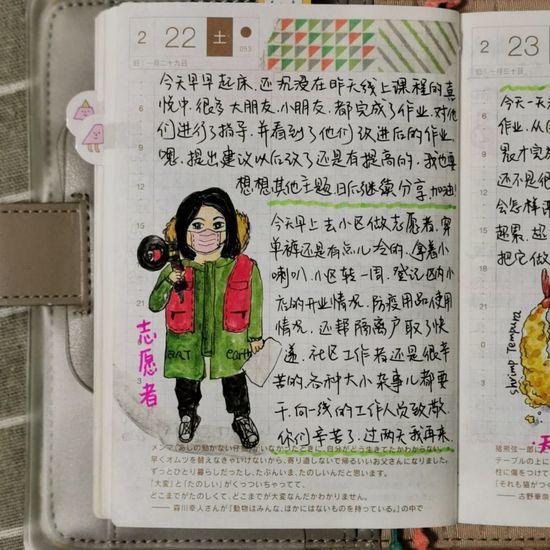 2
22
土
053
旧：一月二十九日
今天早早起床.还沉浸在昨天线上课程的喜
悦中.很多大朋友.小朋友.都完成了作业.对他
们进行了指导.并看到了他们改进后的作业.
嗯.提出建议以后改了还是有提高的.我也要
想想其他主题.日后继续分享.加油!
今天早上去小区做志愿者.穿
单裤还是有点儿冷的.拿着小
喇叭.小区转一圈.登记区内小
店的开业情况.防疫用品使用
情况.还帮隔离户取了快
递.社区工作者还是很辛
苦的.各种大小杂事儿都要
干.向一线的工作人员致敬.
你们辛苦了.过两天我再来.
志愿者
EAT
earth
早くオムツを替えなきゃいけないから、寄り道しないで帰るいいお父さんになりました。
ずっとひとり暮らしだったし、たぶんいま、たのしいんだと思います。
「大変」と「たのしい」がくっついちゃってて、
どこまでがたのしくて、どこまでが大変なんだかわかりません。
── 森川幸人さんが『動物はみんな、ほかにはないものを持っている。』の中で
2
23
今天一天
作业.从
还不是很
会怎样
把它做
Shrimp Tempura
天
テーブルの上に
柱に傷をつけて
「それも猫がつ
── 古野華奈